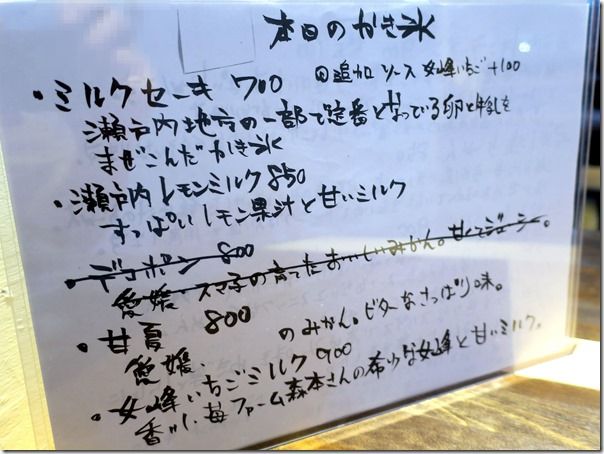 本日のかき氷
・ミルクセーキ 700 追加ソース 女峰いちご+100
瀬戸内地方の一部で定番となっている卵と牛乳を
まぜこんだかき氷
・瀬戸内レモンミルク 850
すっぱいレモン果汁と甘いミルク
・デコポン 800
愛媛 スマ子の育てたおいしいみかん。甘くてジューシー。
・甘夏 800
愛媛、のみかん。ビターなさっぱり味。
・女峰いちごミルク 900
香川、苺ファーム森本さんの希少な女峰と甘いミルク。